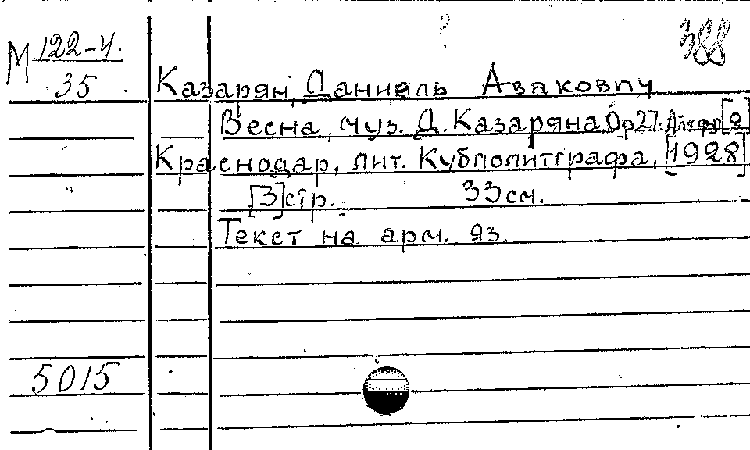 388
М 122-4.
35
Казарян, Даниель Авакович
Весна, муз. Д. Казаряна, Ор 27. [2]
Краснодар, лит. Кубполитграфа, [1928]
[3] стр. 33 см.
Текст на арм. яз.
5015